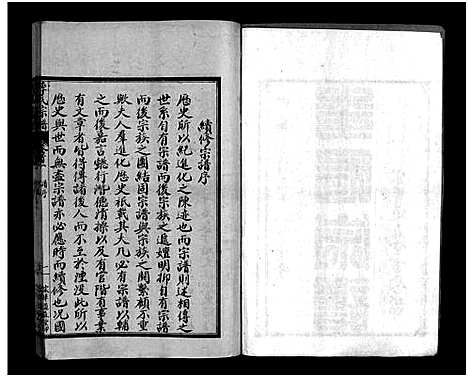 續修宗譜序
歷史所以紀進化之陳迹也而宗譜則述相傳之
世系自有宗譜而後宗族之追遠明仰自有宗譜
而後宗族之團結固宗譜與宗族之關繫顧不重
歟大人羣進化歷史祇載其大凡必有宗譜以輔
之而後嘉言懿行潛德清操以及有官階有事業
有文章者皆得傳諸後人而不至於湮沒此所以
歷史與世而無盡宗譜亦必應時而續修也況國
氏宗譜